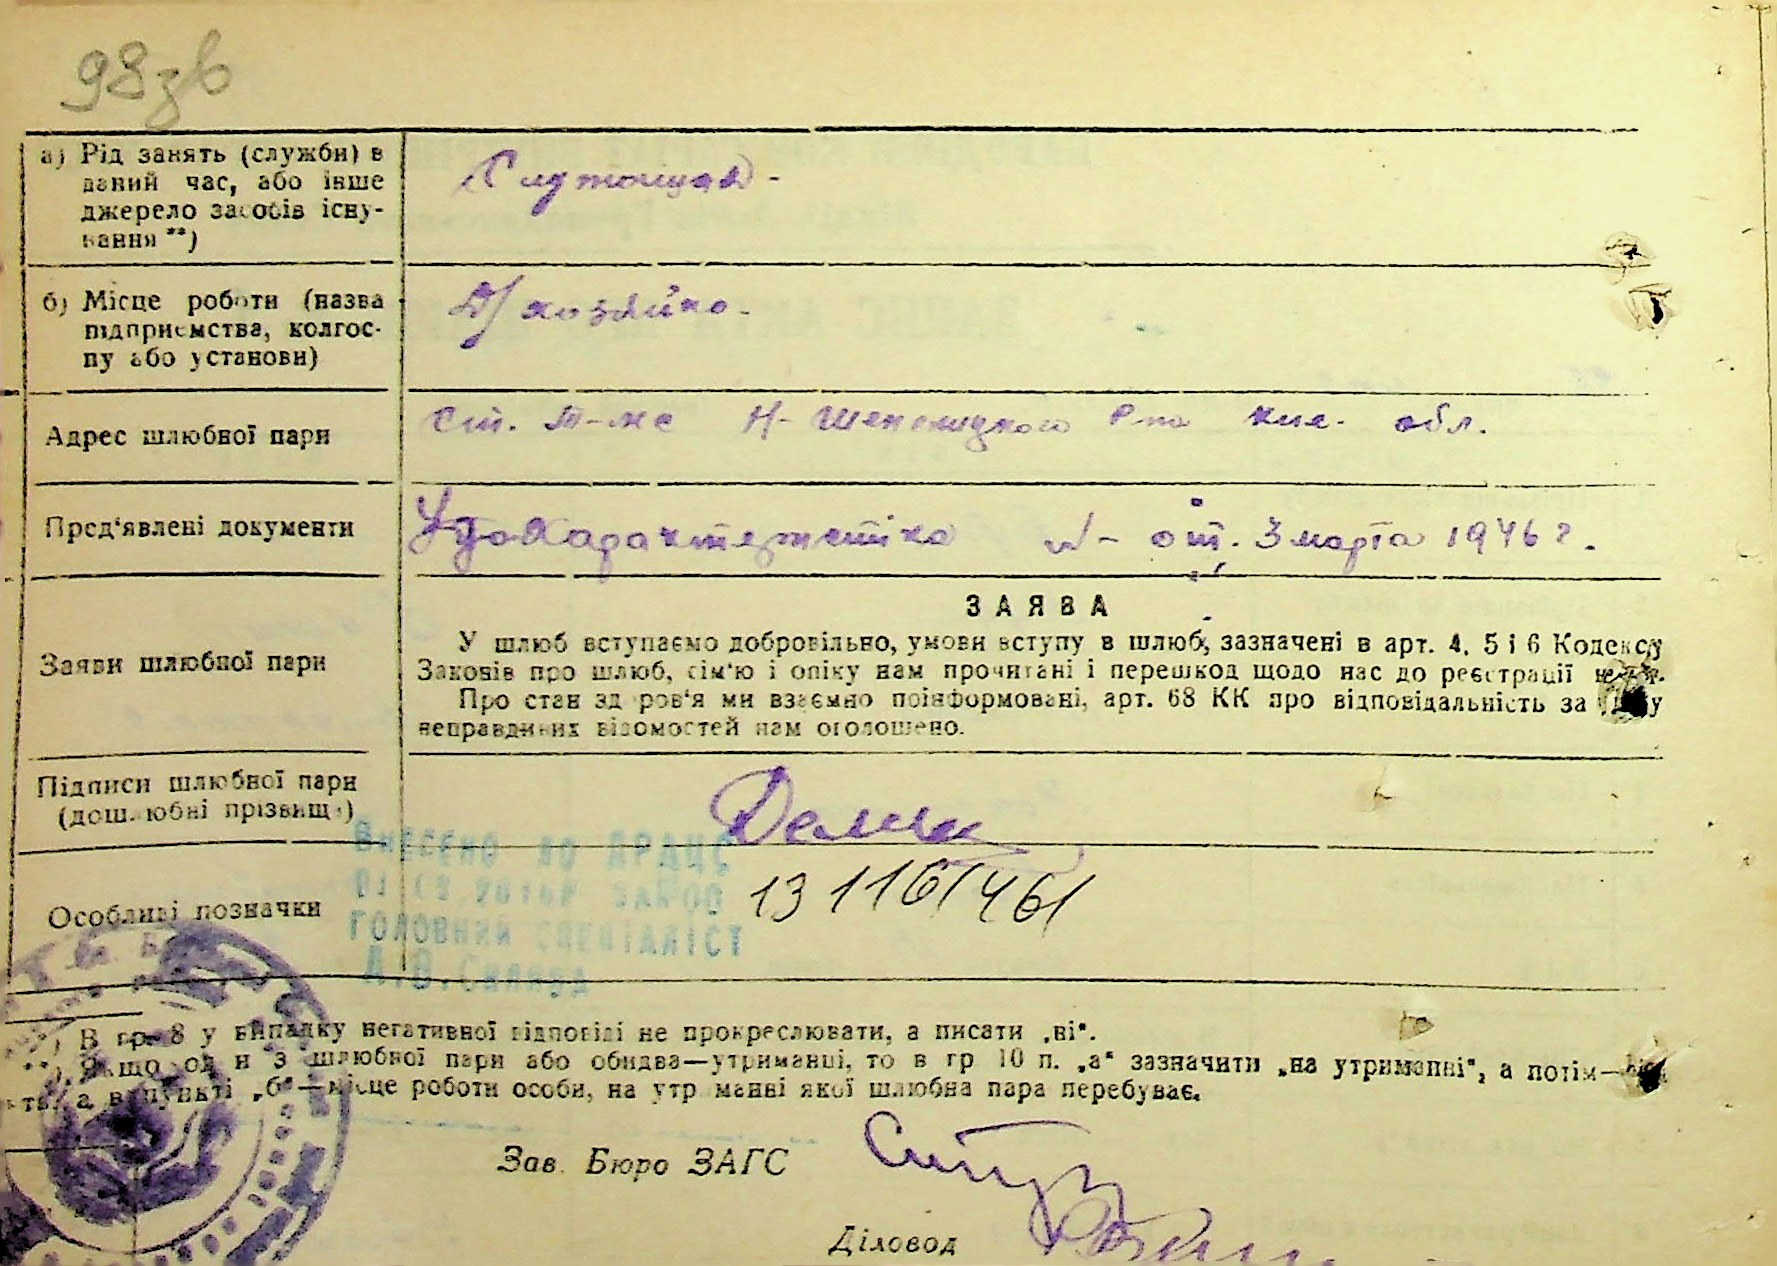 98зв
а) Рід занять (служби) в
даний час, або інше
джерело засобів існу-
вання **)
Служащая -
б) Місце роботи (назва
підприємства, колгос-
пу або установи)
Д/хозяйка -
Адрес шлюбної пари
Ст. обл.
Пред'явлені документи
от. 3 марта 1946 г.
Заяви шлюбної пари
ЗАЯВА
У шлюб вступаємо добровільно, умови вступу в шлюб, зазначені в арт. 4, 5 і 6 Кодексу
Законів про шлюб, сім'ю і опіку нам прочитані і перешкод щодо нас до реєстрації
Про стан здоров'я ми взаємно поінформовані, арт. 68 КК про відповідальність за
неправдивих відомостей нам оголошено.
Підписи шлюбної пари
(дошлюбні прізвища)
ВНЕСЕНО ДО ДРАЦС
Особливі позначки
ГОЛОВНИЙ СПЕЦІАЛІСТ
*) В гр. 8 у випадку негативної відповіді не прокреслювати, а писати „ні".
**) Якщо один з шлюбної пари або обидва—утриманці, то в гр 10 п. „а" зазначити „на утриманні", а потім—
в пункті „б"—місце роботи особи, на утриманні якої шлюбна пара перебуває.
Зав. Бюро ЗАГС
Діловод